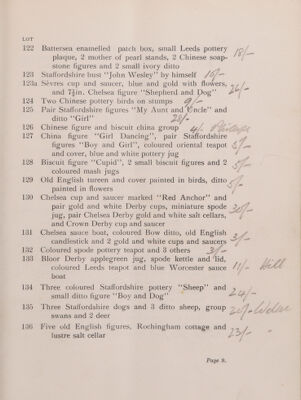 LOT
122 Battersea enamelled patch box, small Leeds pottery
plaque, 2 mother of pearl stands, 2 Chinese soap-
stone figures and 2 small ivory ditto 18/-
123 Staffordshire bust "John Wesley" by himself 10/-
123a Sèvres cup and saucer, blue and gold with flowers,
and 7½in. Chelsea figure "Shepherd and Dog"
124 Two Chinese pottery birds on stumps 9/-
125 Pair Staffordshire figures "My Aunt and Uncle" and
ditto "Girl" 28/-
126 Chinese figure and biscuit china group 4/-
127 China figure "Girl Dancing", pair Staffordshire
figures "Boy and Girl", coloured oriental teapot 5/-
and cover, blue and white pottery jug
128 Biscuit figure "Cupid", 2 small biscuit figures and 2 5/-
coloured mash jugs
129 Old English tureen and cover painted in birds, ditto 5/-
painted in flowers
130 Chelsea cup and saucer marked "Red Anchor" and
pair gold and white Derby cups, miniature spode
jug, pair Chelsea Derby gold and white salt cellars,
and Crown Derby cup and saucer
131 Chelsea sauce boat, coloured Bow ditto, old English
candlestick and 2 gold and white cups and saucers 3/-
132 Coloured spode pottery teapot and 3 others 3/-
133 Bloor Derby applegreen jug, spode kettle and lid,
coloured Leeds teapot and blue Worcester sauce 11/- Hill
boat
134 Three coloured Staffordshire pottery "Sheep" and
small ditto figure "Boy and Dog" 24/-
135 Three Staffordshire dogs and 3 ditto sheep, group
swans and 2 deer
136 Five old English figures, Rochingham cottage and
lustre salt cellar 23/-
Page 8.